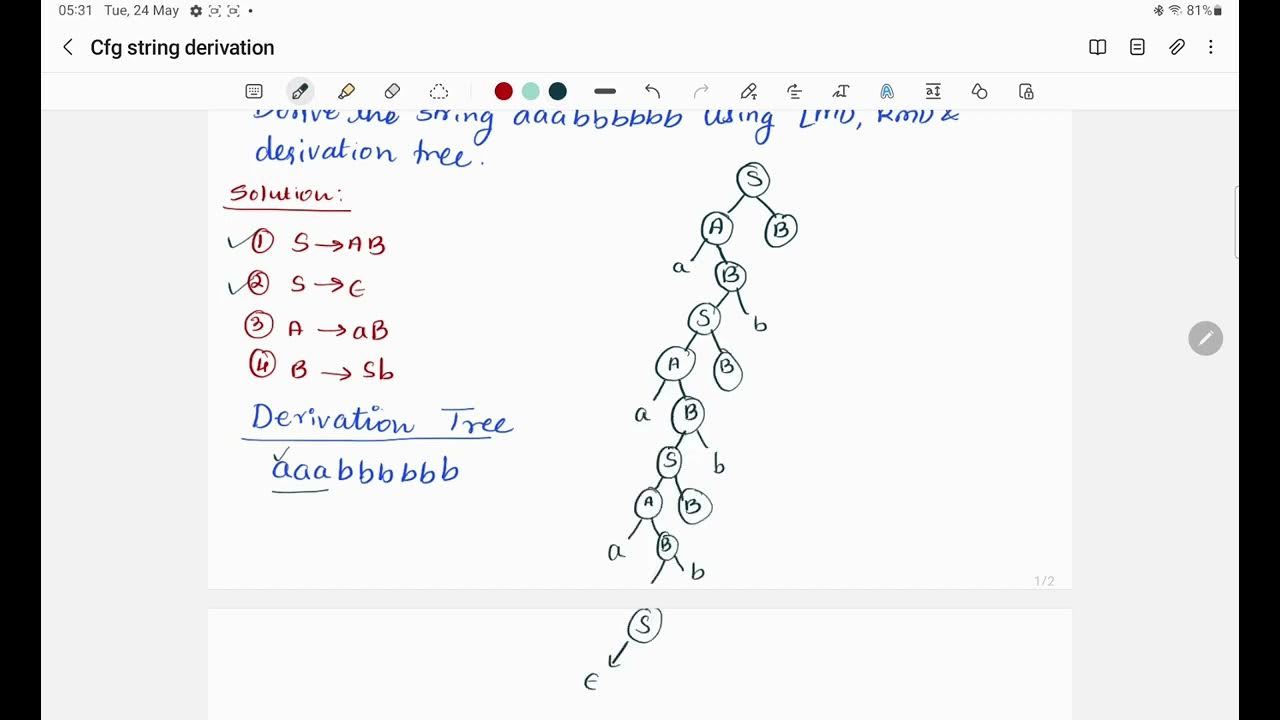 05:31 Tue, 24 May
81%
Cfg string derivation
Derive the string aaabbbbbb using LMD, RMD &
derivation tree.
Solution:
① S → AB
② S → ε
③ A → aB
④ B → Sb
Derivation Tree
aaabbbbbb
S
A B
a B
S b
A B
a B
S b
A B
a B
b
1/2
S
ε